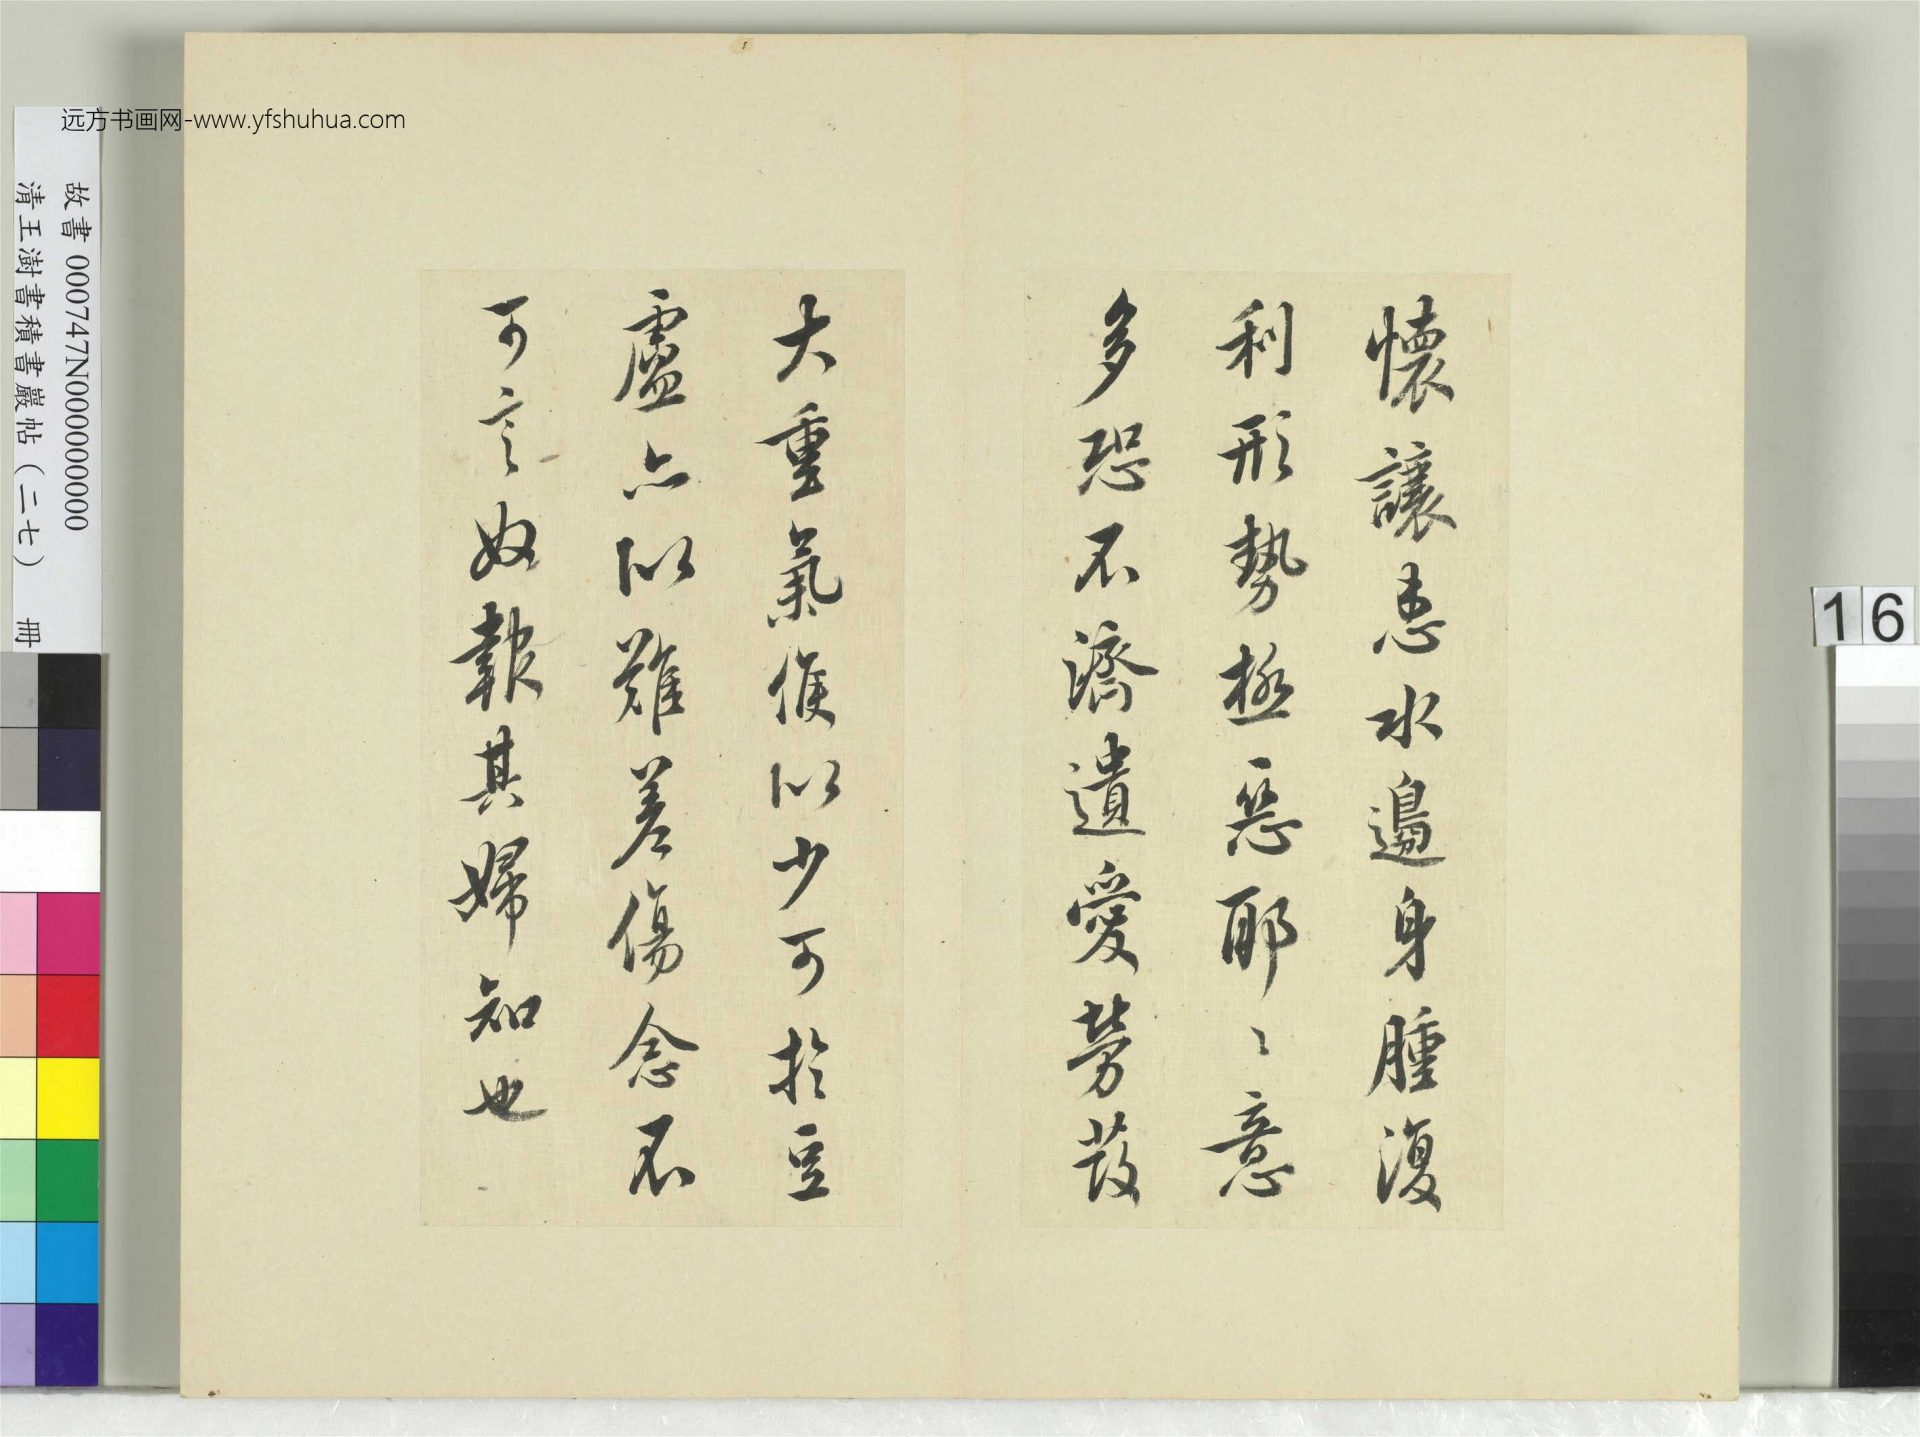 远方书画网-www.yfshuhua.com
故書 000747N000000000
清王澍書積書巖帖（二七） 冊
16
懷讓患水邊身腫復
利形勢極惡耶〻意
多恐不濟遺愛勞發
大重氣候似少可於豆
盧亦似難差傷念不
可言奴報其婦知也